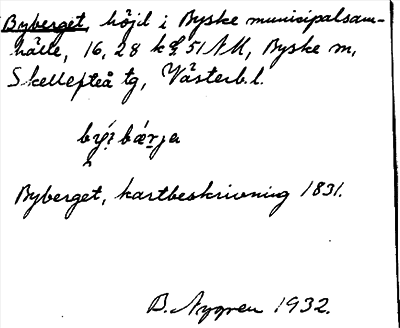 Byberget, höjd i Byske municipalsam-
hälle, 16, 28 kbl 51 NU, Byske sn,
Skellefteå tg, Västerb. l.
býi bærja
Byberget, kartbeskrivning 1831.
B. Nygren 1932.